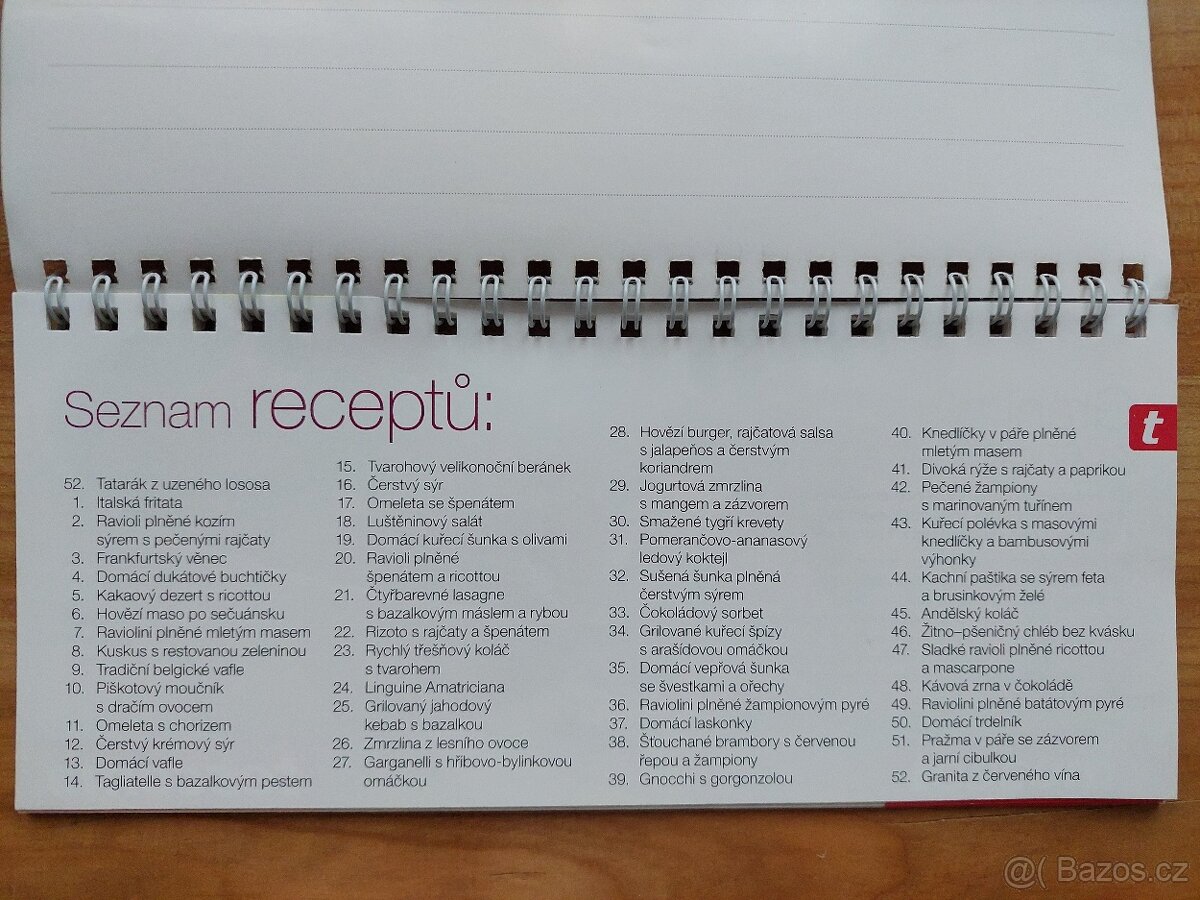 Seznam receptů:
52. Tatarák z uzeného lososa
1. Italská fritata
2. Ravioli plněné kozím
sýrem s pečenými rajčaty
3. Frankfurtský věnec
4. Domácí dukátové buchtičky
5. Kakaový dezert s ricottou
6. Hovězí maso po sečuánsku
7. Raviolini plněné mletým masem
8. Kuskus s restovanou zeleninou
9. Tradiční belgické vafle
10. Piškotový moučník
s dračím ovocem
11. Omeleta s chorizem
12. Čerstvý krémový sýr
13. Domácí vafle
14. Tagliatelle s bazalkovým pestem
15. Tvarohový velikonoční beránek
16. Čerstvý sýr
17. Omeleta se špenátem
18. Luštěninový salát
19. Domácí kuřecí šunka s olivami
20. Ravioli plněné
špenátem a ricottou
21. Čtyřbarevné lasagne
s bazalkovým máslem a rybou
22. Rizoto s rajčaty a špenátem
23. Rychlý třešňový koláč
s tvarohem
24. Linguine Amatriciana
25. Grilovaný jahodový
kebab s bazalkou
26. Zmrzlina z lesního ovoce
27. Garganelli s hříbovo-bylinkovou
omáčkou
28. Hovězí burger, rajčatová salsa
s jalapeños a čerstvým
koriandrem
29. Jogurtová zmrzlina
s mangem a zázvorem
30. Smažené tygří krevety
31. Pomerančovo-ananasový
ledový koktejl
32. Sušená šunka plněná
čerstvým sýrem
33. Čokoládový sorbet
34. Grilované kuřecí špízy
s arašídovou omáčkou
35. Domácí vepřová šunka
se švestkami a ořechy
36. Raviolini plněné žampionovým pyré
37. Domácí laskonky
38. Šťouchané brambory s červenou
řepou a žampiony
39. Gnocchi s gorgonzolou
40. Knedlíčky v páře plněné
mletým masem
41. Divoká rýže s rajčaty a paprikou
42. Pečené žampiony
s marinovaným tuřínem
43. Kuřecí polévka s masovými
knedlíčky a bambusovými
výhonky
44. Kachní paštika se sýrem feta
a brusinkovým želé
45. Andělský koláč
46. Žitno–pšeničný chléb bez kvásku
47. Sladké ravioli plněné ricottou
a mascarpone
48. Kávová zrna v čokoládě
49. Raviolini plněné batátovým pyré
50. Domácí trdelník
51. Pražma v páře se zázvorem
a jarní cibulkou
52. Granita z červeného vína
t
@( Bazos.cz